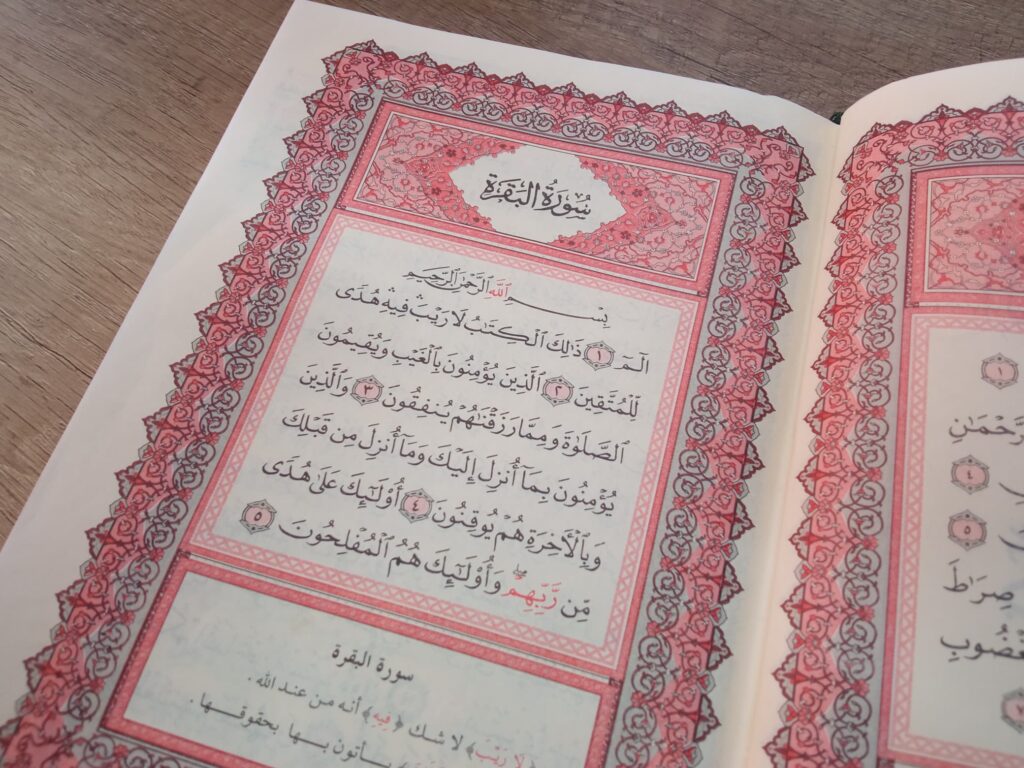 ١
٤
٥
صِرَٰطَ
سُورَةُ البَقَرَةِ
بِسْمِ ٱللَّهِ ٱلرَّحْمَٰنِ ٱلرَّحِيمِ
الٓمٓ ١ ذَٰلِكَ ٱلْكِتَٰبُ لَا رَيْبَ فِيهِ هُدًى
لِّلْمُتَّقِينَ ٢ ٱلَّذِينَ يُؤْمِنُونَ بِٱلْغَيْبِ وَيُقِيمُونَ
ٱلصَّلَوٰةَ وَمِمَّا رَزَقْنَٰهُمْ يُنفِقُونَ ٣ وَٱلَّذِينَ
يُؤْمِنُونَ بِمَآ أُنزِلَ إِلَيْكَ وَمَآ أُنزِلَ مِن قَبْلِكَ
وَبِٱلْأَخِرَةِ هُمْ يُوقِنُونَ ٤ أُوْلَٰٓئِكَ عَلَىٰ هُدًى
مِّن رَّبِّهِمْ ۖ وَأُوْلَٰٓئِكَ هُمُ ٱلْمُفْلِحُونَ ٥
سورة البقرة
﴿لَا رَيْبَ﴾ لا شك ﴿فِيهِ﴾ أنه من عند الله .
يأتون بها بحقوقها .